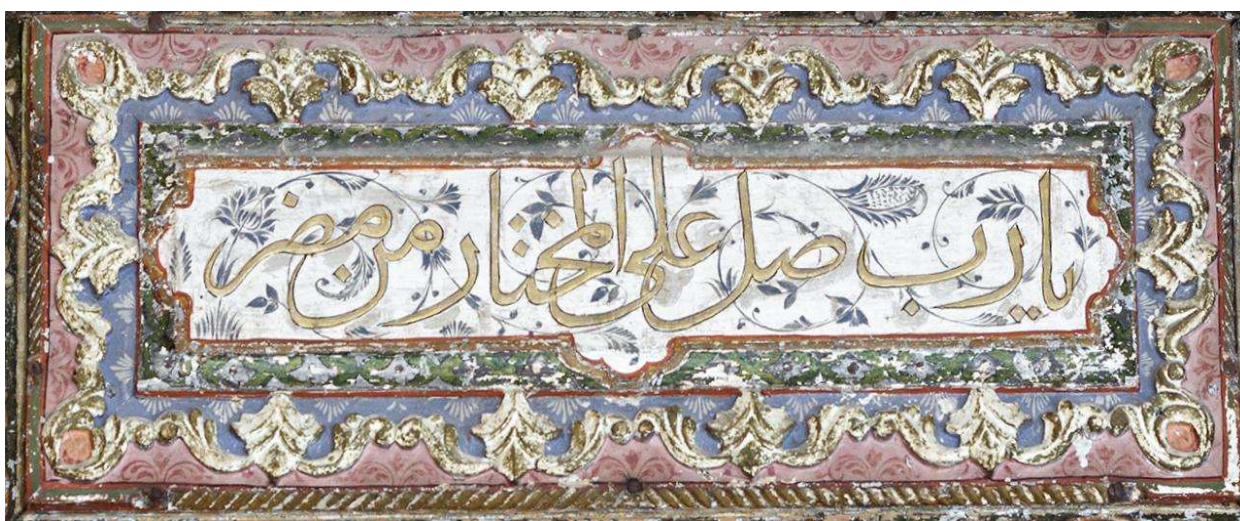 يا رب صل على المختار من مضر